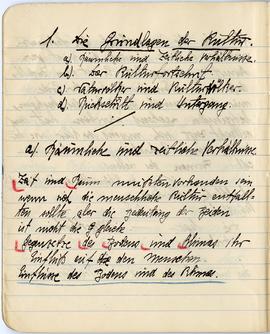 1. Die Grundlagen der Kultur.
a.) Räumliche und Zeitliche Verhältnisse.
b.) Der Kulturfortschritt.
c.) Naturvölker und Kulturvölker.
d.) Rückschritt und Untergang.
a.) Räumliche und zeitliche Verhältnisse.
Zeit und Raum mussten vorhanden sein
wenn sich die menschliche Kultur entfall-
ten sollte aber die Bedeutung der beiden
ist nicht die gleiche
Gegensätze des Bodens und Klimas ihr
Einfluß auf den Menschen
Einflüsse des Bodens und des Klimas.